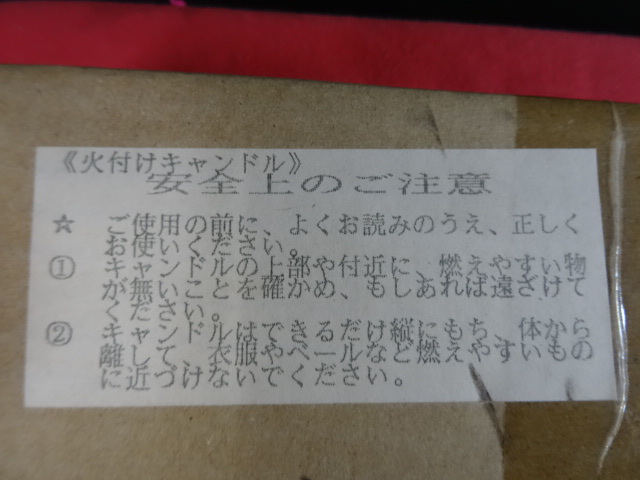 《火付けキャンドル》
安全上のご注意
☆ ご使用の前に、よくお読みのうえ、正しく
お使いください。
① キャンドルの上部や付近に、燃えやすい物
が無いことを確かめ、もしあれば遠ざけて
ください。
② キャンドルはできるだけ縦にもち、体から
離して、衣服やベールなど燃えやすいもの
に近づけないでください。